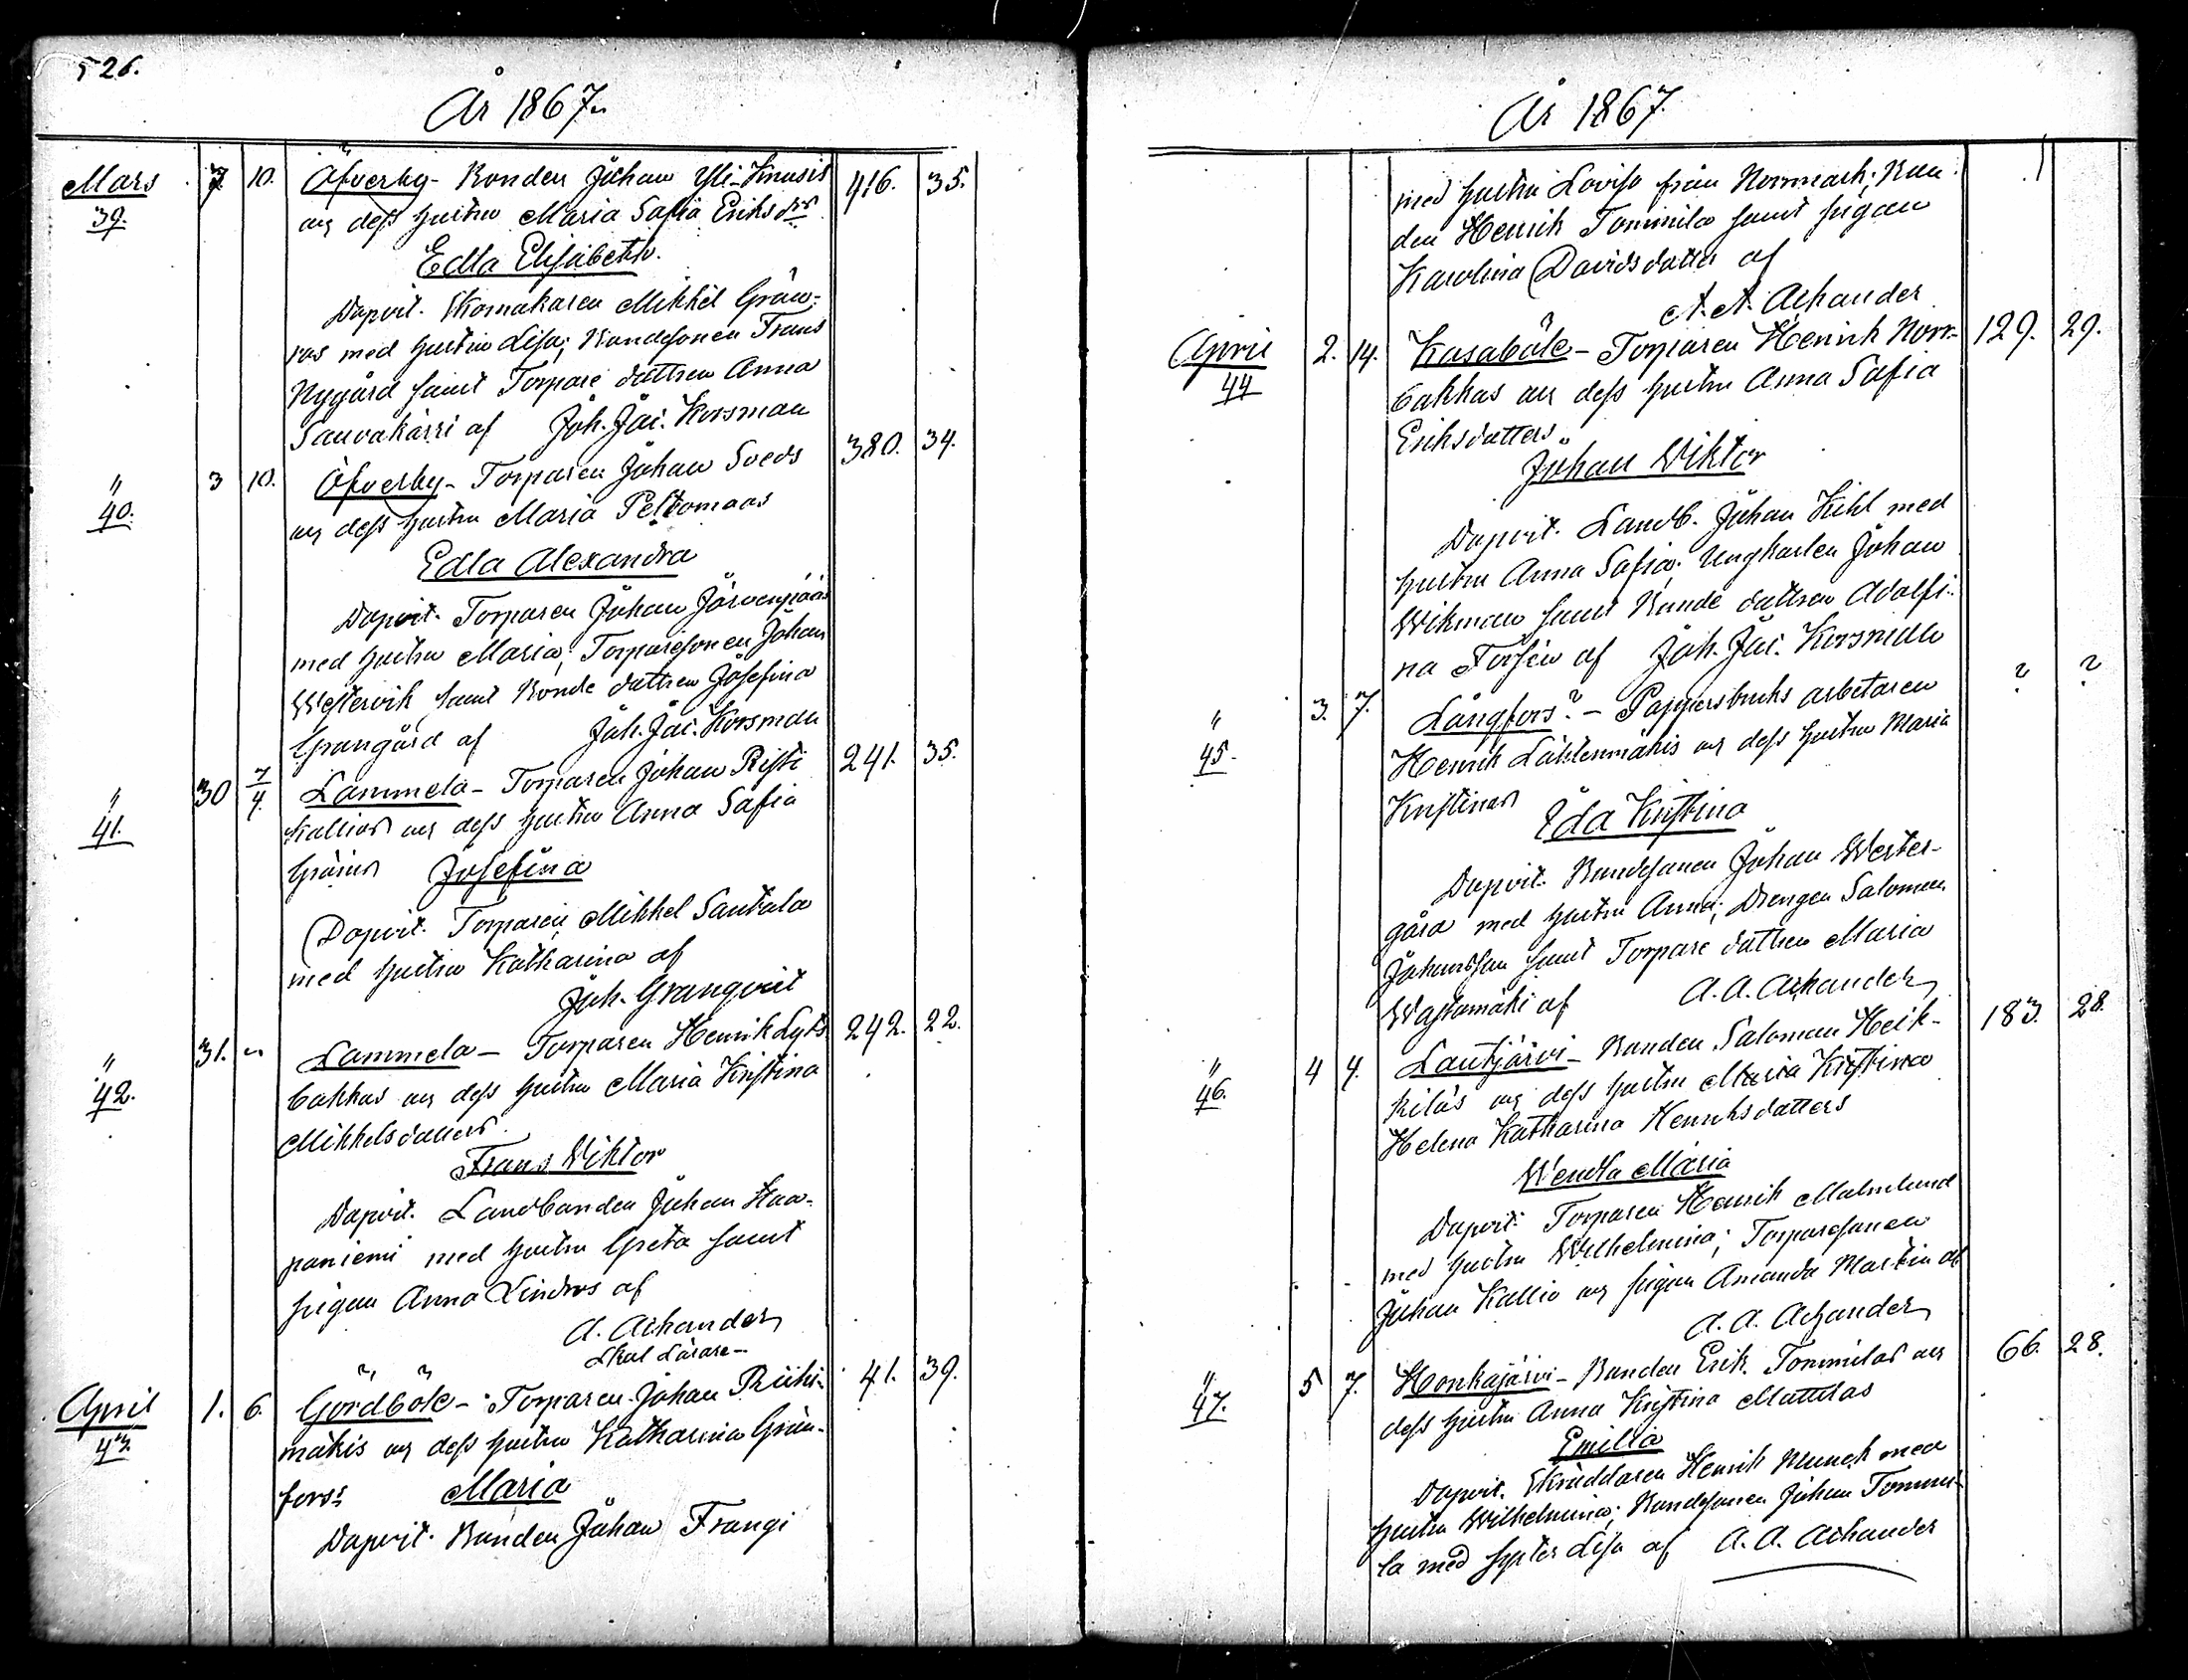 526.
År 1867.
Mars 7. 10. Öfverby - Bonden Johan Yli-Knusis 416. 35.
39. och dess hustru Maria Sofia Eriksdrs
Edla Elisabeth.
Dopvit. Skomakaren Mikkel Grön-
ros med hustru Lisa; Bondesonen Frans
Nygård samt Torpare dottren Anna
Sauvakärri af Joh. Jac. Korsman
" 3 10. Öfverby - Torparen Johan Sveds 380. 34.
40. och dess hustru Maria Peltomaas
Edla Alexandra
Dopvit. Torparen Johan Järvenpääs
med hustru Maria; Torparesonen Johan
Westervik samt Bonde dottren Josefina
Grangård af Joh. Jac. Korsman
" 30 7/4. Lammela - Torparen Johan Risti 241. 35.
41. kallios och dess hustru Anna Sofia
Gröns Josefina
Dopvit. Torparen Mikkel Santala
med hustru Katharina af
Joh. Granqvist
" 31. " Lammela - Torparen Henrik Lyts 242. 22.
42. backas och dess hustru Maria Kristina
Mikkelsdotters.
Frans Wiktor
Dopvit. Landbonden Johan Haa-
paniemi med hustru Greta samt
pigan Anna Lindros af
A. Achander
Skol Lärare -
April 1. 6. Gördböle - Torparen Johan Riihi- 41. 39.
43. mäkis och dess hustru Katharina Grön-
fors: Maria
Dopvit. Bonden Johan Frangi
År 1867.
med hustru Lovisa från Norrmark; Bon-
den Henrik Tommila samt pigan
Karolina Davidsdotter af
A. A. Achander
April 2. 14. Kasaböle - Torparen Henrik Norr- 129. 29.
44 backas och dess hustru Anna Sofia
Eriksdotters
Johan Wiktor
Dopvit. Landb. Johan Kihl med
hustru Anna Sofia; Ungkarlen Johan
Wikman samt Bonde dottren Adolfi-
na Forsén af Joh. Jac. Korsman
" 3. 7. Långfors? - Pappersbruks arbetaren ? ?
45. Henrik Lähtenmäkis och dess hustru Maria
Kristinas Ida Kristina
Dopvit. Bondesonen Johan Wester-
gård med hustru Anna; Drengen Salomon
Johansson samt Torpare dottren Maria
Wastamäki af A. A. Achander
" 4 4. Lautjärvi - Bonden Salomon Heik- 183. 28.
46. kilas och dess hustru Maria Kristina
Helena Katharina Henriksdotters
Wendla Maria
Dopvit: Torparen Henrik Malmlund
med hustru Wilhelmina; Torparesonen
Johan Kallio och pigan Amanda Martin af
A. A. Achander
" 5 7. Honkajärvi - Bonden Erik Tommilas och 66. 28.
47. dess hustru Anna Kristina Mattilas
Emilia
Dopvit. Skräddaren Henrik Munck med
hustru Wilhelmina; Bondesonen Johan Tommi-
la med syster Lisa af A. A. Achander